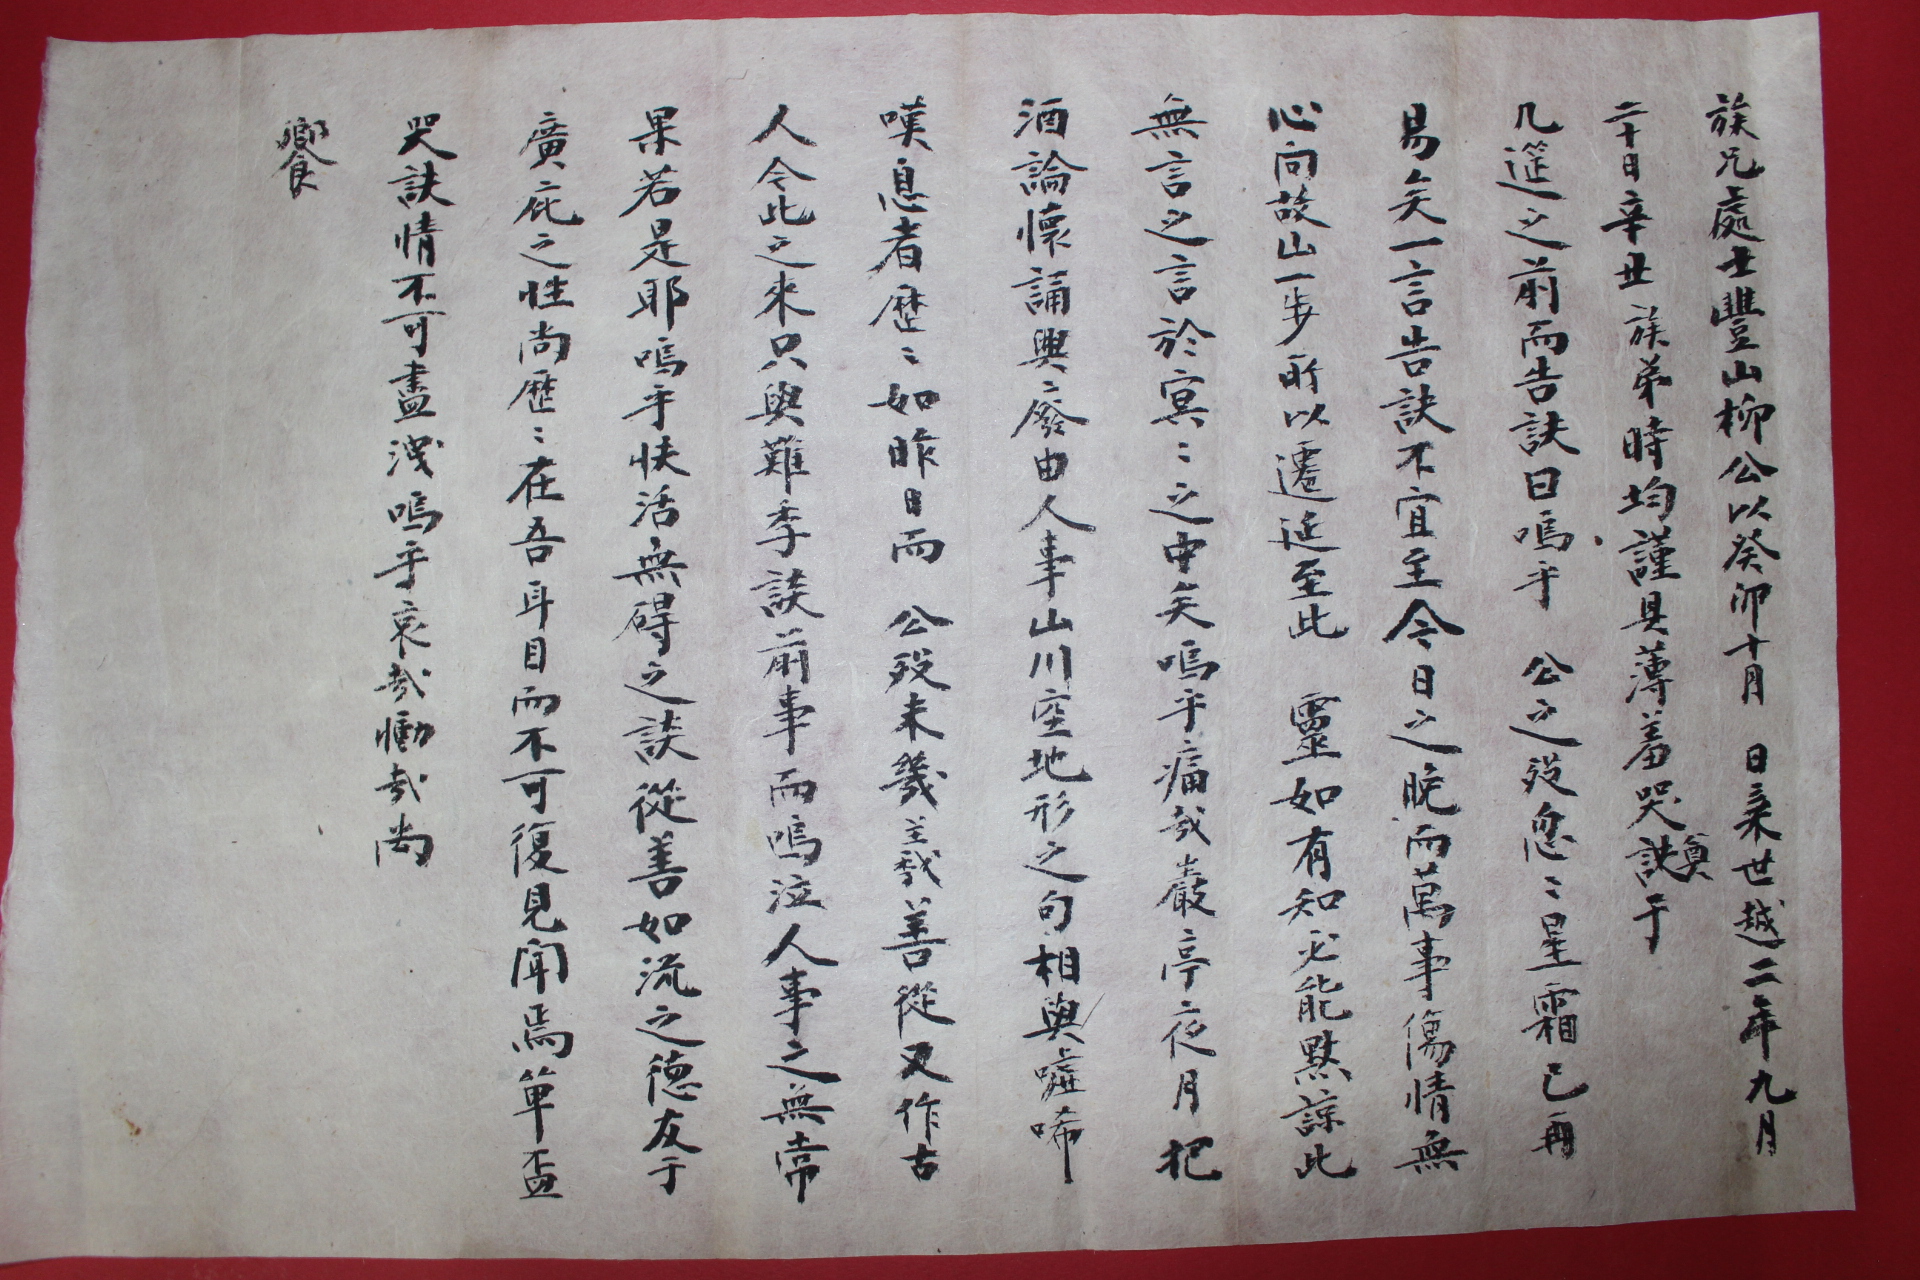 族兄處士豐山柳公以癸卯十月 日棄世越二年九月
二十日辛丑族弟時均謹具薄羞哭訣奠于
几筵之前而告訣曰嗚乎 公之歿忽〻星霜已再
易矣一言告訣不宜至今日之晩而萬事傷情無
心向故山一步所以遷延至此 靈如有知必能默諒此
無言之言於冥〻之中矣嗚乎痛哉巖亭夜月把
酒論懷誦興廢由人事山川空地形之句相與噓唏
嘆息者歷〻如昨日而 公歿未幾主戎善從又作古
人今此之來只與難季談前事而嗚泣人事之無常
果若是耶嗚乎快活無碍之談從善如流之德友于
廣庇之性尙歷〻在吾耳目而不可復見聞焉單盃
哭訣情不可盡洩嗚乎哀哉慟哉尙
饗